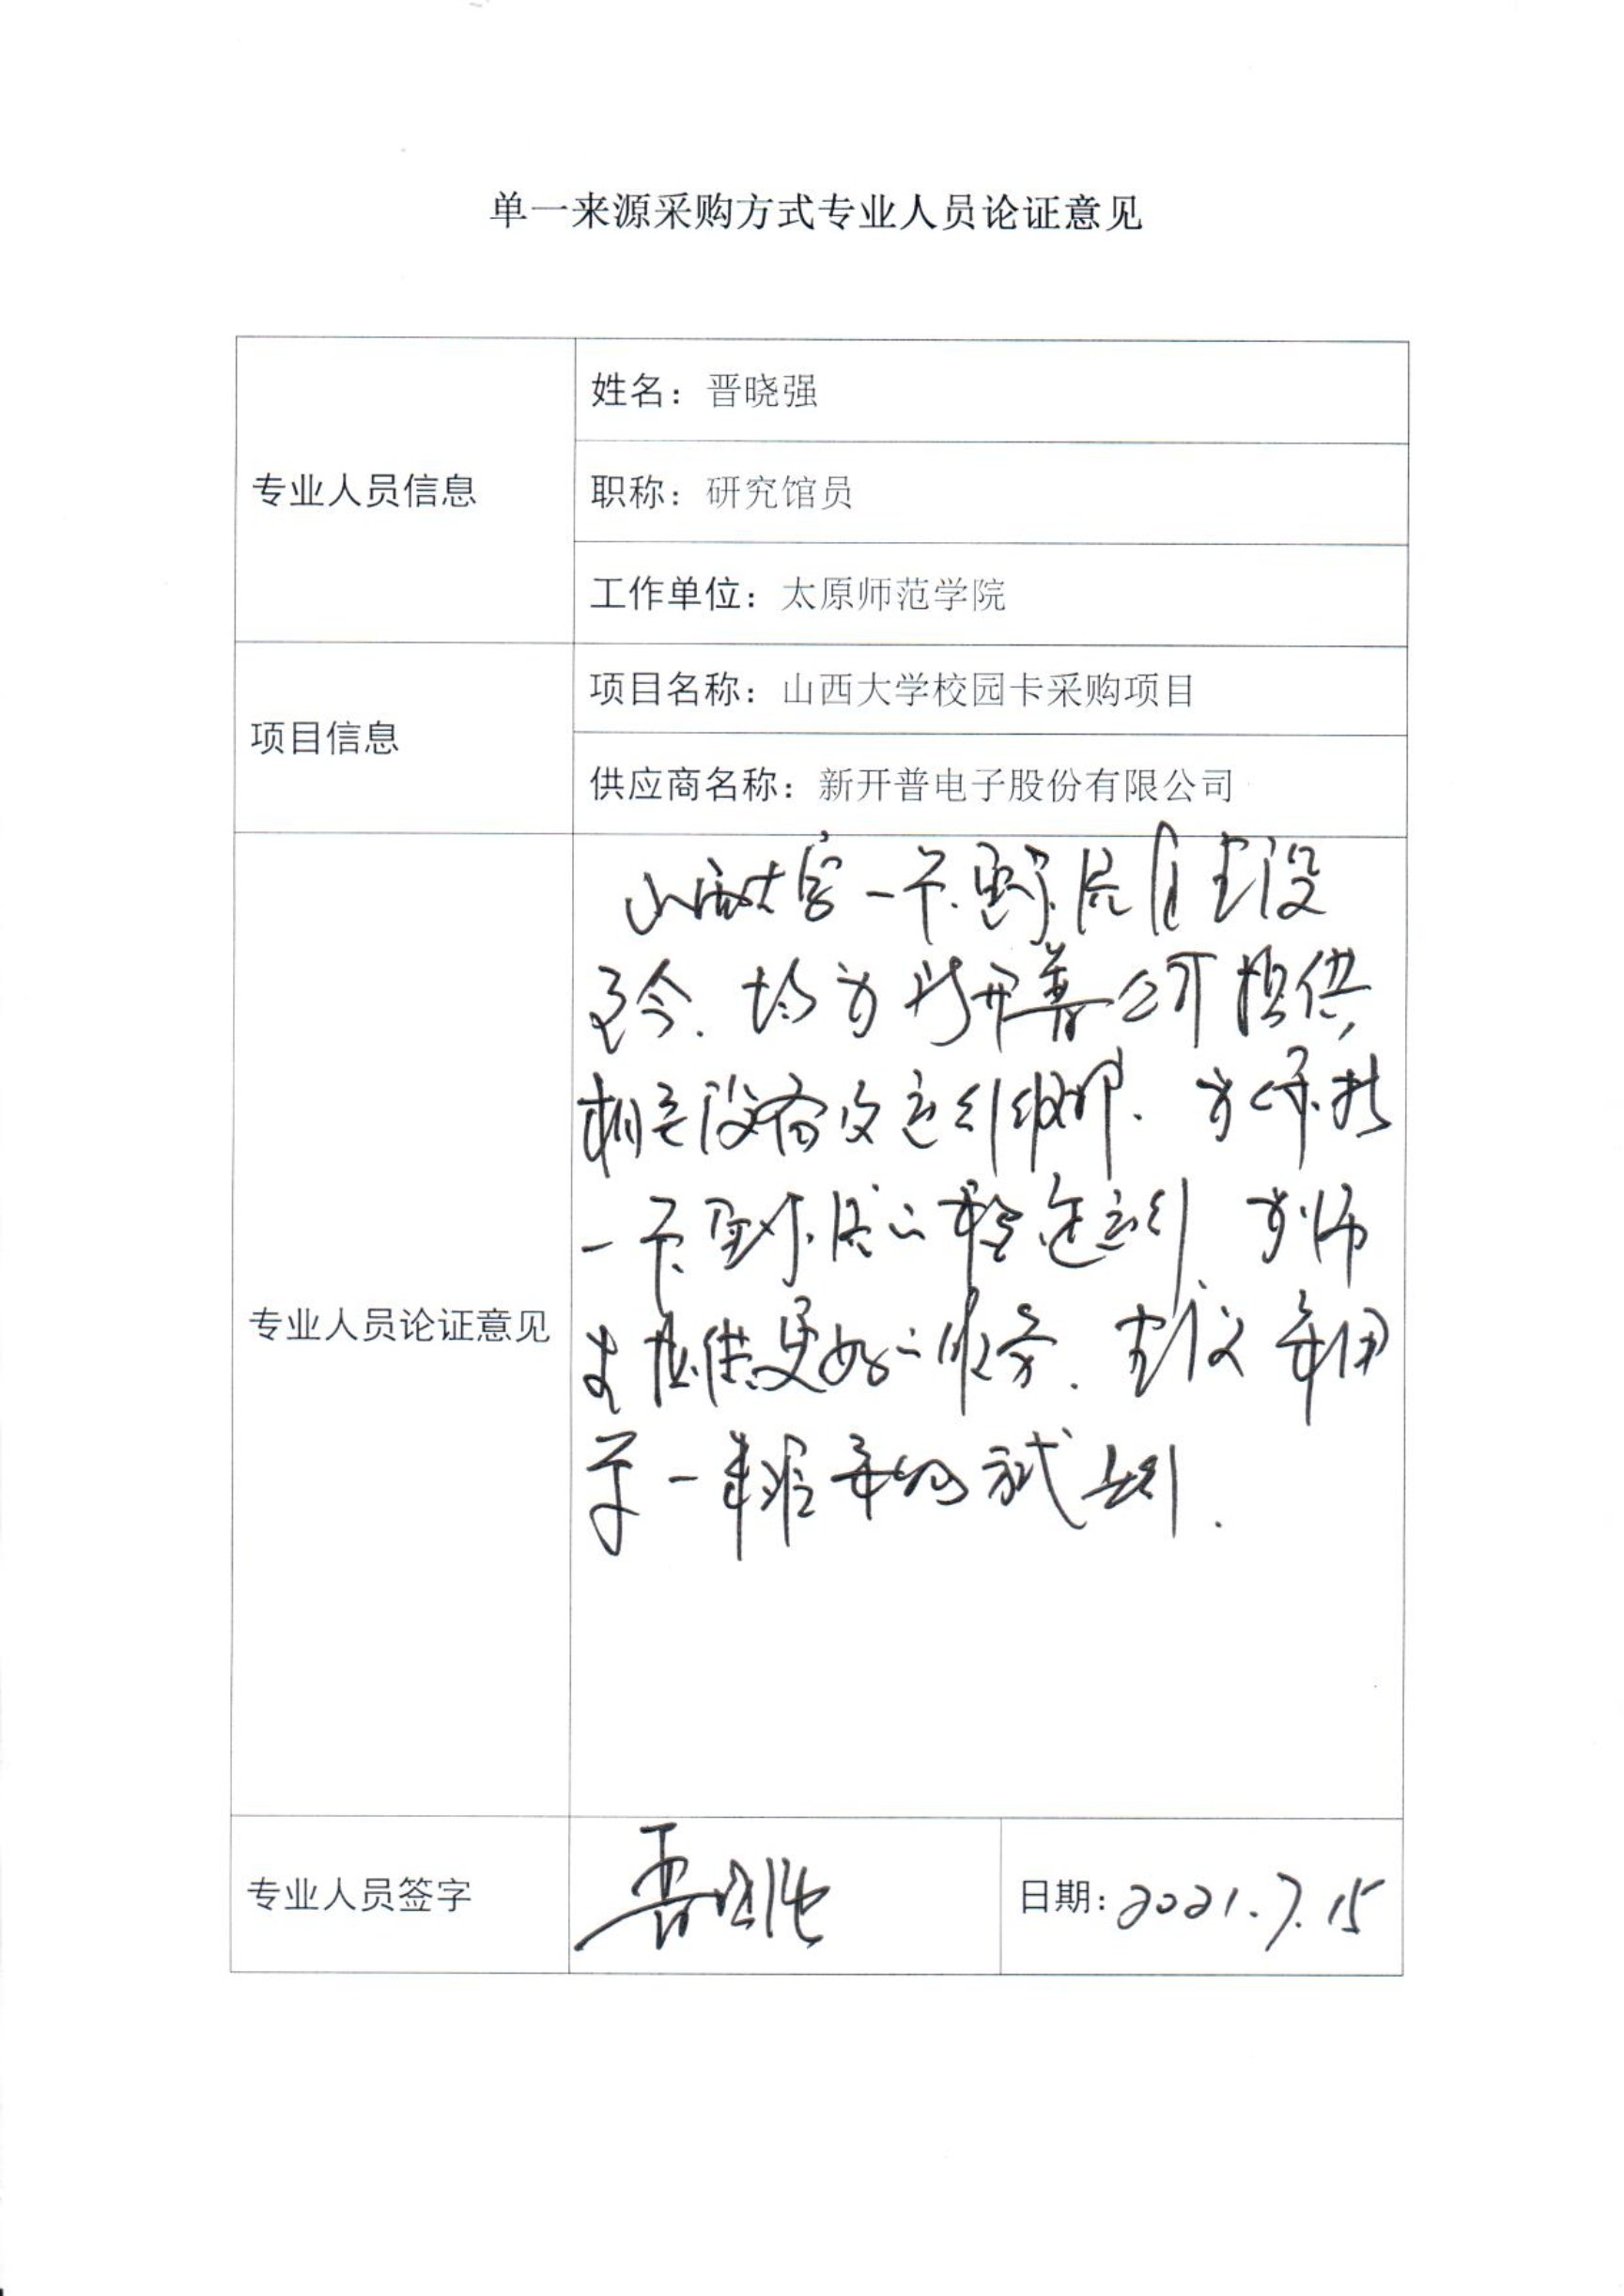 单一来源采购方式专业人员论证意见
专业人员信息
姓名：晋晓强
职称：研究馆员
工作单位：太原师范学院
项目信息
项目名称：山西大学校园卡采购项目
供应商名称：新开普电子股份有限公司
专业人员论证意见
山西大学一卡通系统自建设
至今，均为新开普公司提供
相关设备及运行维护，为保持
一卡通系统的稳定运行，为师
生提供更好的服务，建议采用
单一来源采购方式进行.
专业人员签字
晋晓强
日期：2021.7.15